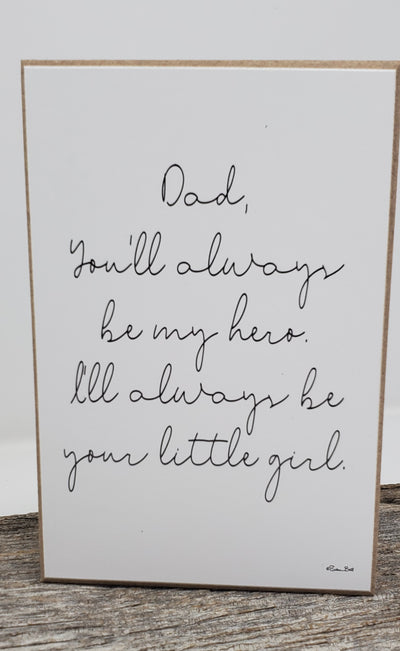 Dad,
You'll always
be my hero.
I'll always be
your little girl.